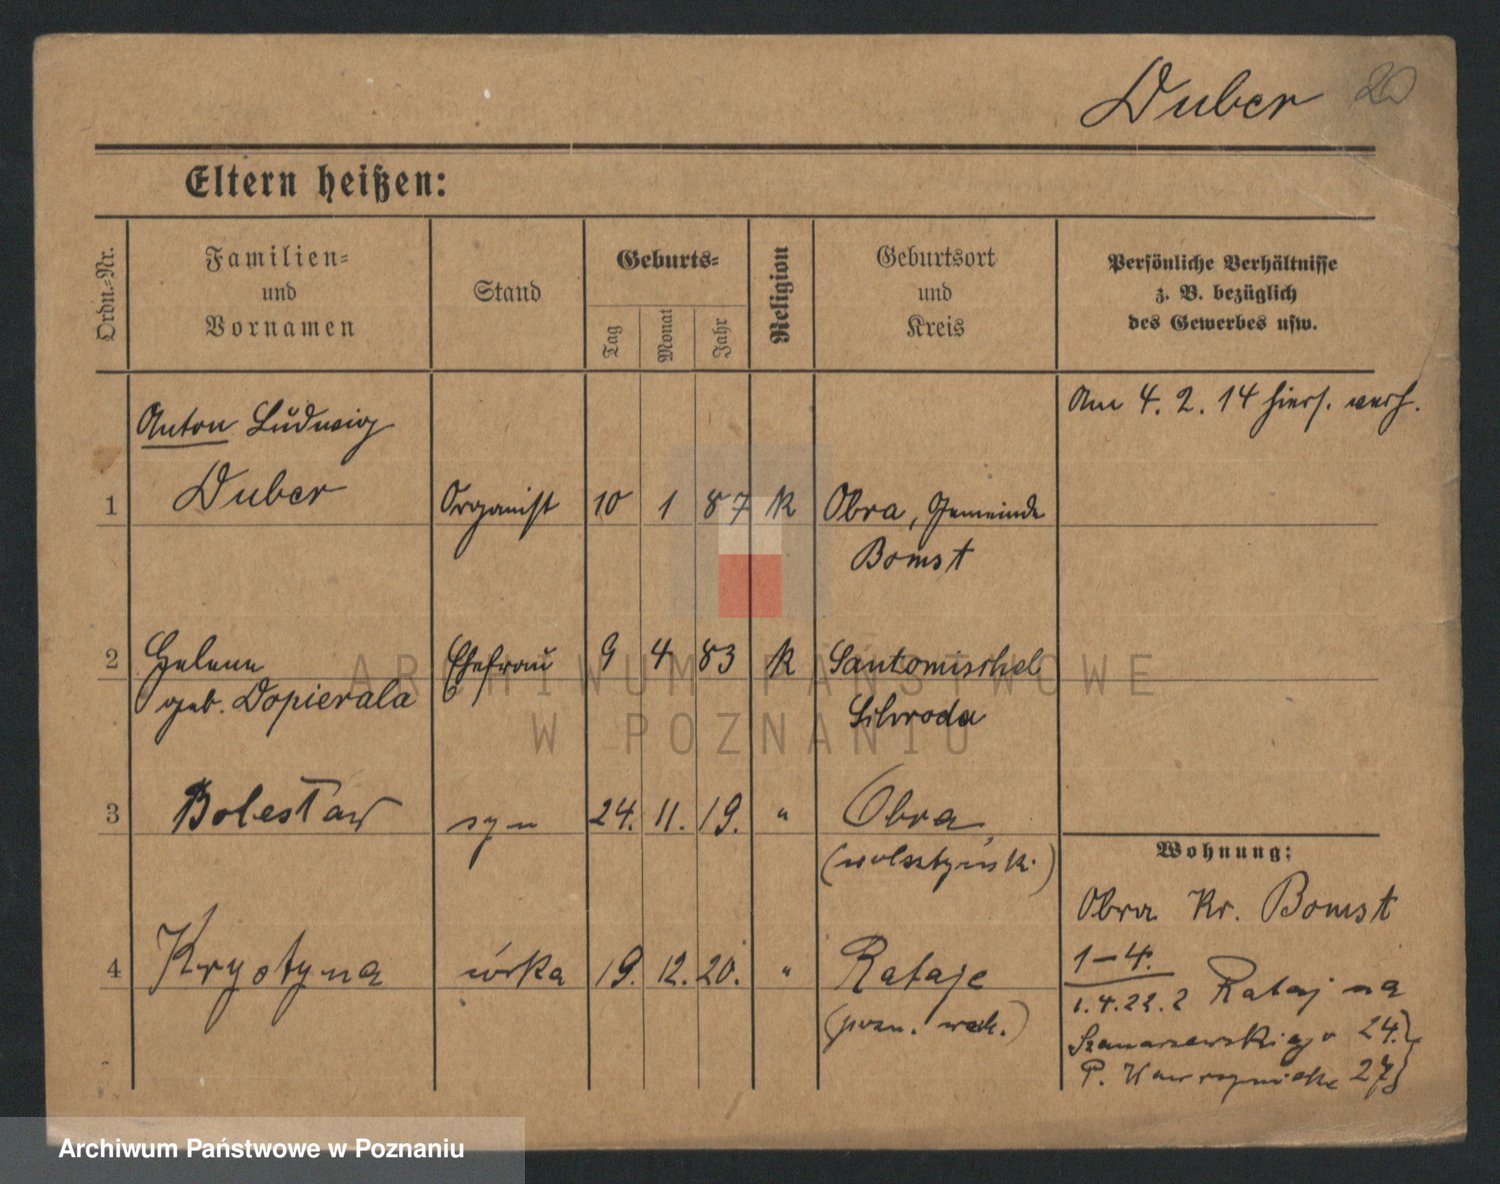 Duber 20
Eltern heißen:
Ordn.-Nr.
Familien-
und
Vornamen
Stand
Geburts-
Tag
Monat
Jahr
Religion
Geburtsort
und
Kreis
Persönliche Verhältnisse
z. B. bezüglich
des Gewerbes usw.
Anton Ludwig
Am 4. 2. 14 hiers. verh.
1 Duber Organist 10 1 87 K Obra, Gemeinde
Bomst
2 Helene Ehefrau 9 4 83 K Santomischel
geb. Dopierala Schroda
3 Bolesław syn 24. 11. 19. " Obra
(wolsztyńsk.)
Wohnung:
Obra Kr. Bomst
4 Krystyna córka 19. 12. 20. " Rataje
(pozn. wsch.)
1-4.
1.4.22. z Rataj na
Szamarzewskiego 24.
P. Wawrzyniaka 27
ARCHIWUM PAŃSTWOWE
W POZNANIU
Archiwum Państwowe w Poznaniu